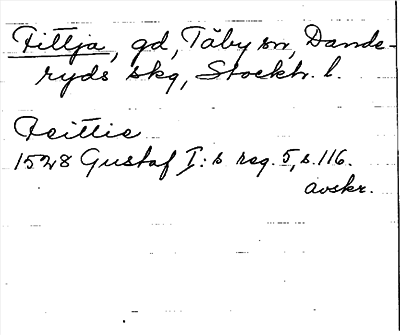 Fittja, gd, Täby sn, Dande-
ryds skg, Stockh. l.
Feittie
1528 Gustaf I:s reg. 5, s. 116.
avskr.